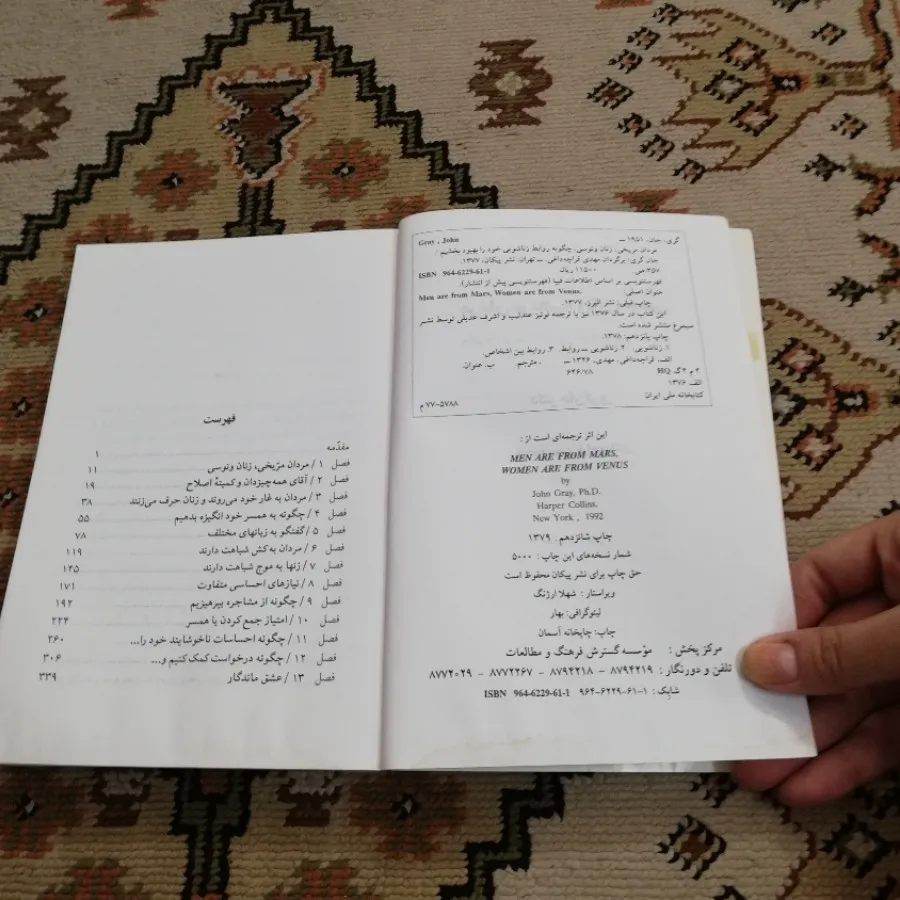 گری، جان، ۱۹۵۱ ــ Gray , John
مردان مریخی، زنان ونوسی، چگونه روابط زناشویی خود را بهبود بخشیم /
جان گری؛ برگردان مهدی قراچه‌داغی. ــ تهران: نشر پیکان، ۱۳۷۷.
۳۵۷ ص. ۱۱۵۰۰ ریال ISBN 964-6229-61-1
فهرستنویسی بر اساس اطلاعات فیپا (فهرستنویسی پیش از انتشار).
عنوان اصلی: Men are from Mars, Women are from Venus.
چاپ قبلی: نشر البرز، ۱۳۷۷.
این کتاب در سال ۱۳۷۶ نیز با ترجمه لوئیز عندلیب و اشرف عدیلی توسط نشر
سیمرغ منتشر شده است.
چاپ پانزدهم: ۱۳۷۸.
۱. زناشویی. ۲. زناشویی ــ روابط. ۳. روابط بین اشخاص.
الف. قراچه‌داغی، مهدی، ۱۳۲۶ ــ ، مترجم. ب. عنوان.
۲ م ۴گ HQ ۶۴۶/۷۸
الف ۱۳۷۶
کتابخانه ملی ایران ۵۷۸۸-۷۷ م
این اثر ترجمه‌ای است از:
MEN ARE FROM MARS,
WOMEN ARE FROM VENUS
by
John Gray, Ph.D.
Harper Collins,
New York , 1992
چاپ شانزدهم، ۱۳۷۹
شمار نسخه‌های این چاپ: ۵۰۰۰
حق چاپ برای نشر پیکان محفوظ است
ویراستار: شهلا ارژنگ
لیتوگرافی: بهار
چاپ: چاپخانه آسمان
مرکز پخش: مؤسسه گسترش فرهنگ و مطالعات
تلفن و دورنگار: ۸۷۹۴۲۱۹ - ۸۷۹۴۲۱۸ - ۸۷۷۲۲۶۷ - ۸۷۷۲۰۲۹
شابک: ۱-۶۱-۶۲۲۹-۹۶۴ ISBN 964-6229-61-1
فهرست
مقدّمه ۱
فصل ۱ / مردان مرّیخی، زنان ونوسی ۱۱
فصل ۲ / آقای همه‌چیزدان و کمیتهٔ اصلاح ۱۹
فصل ۳ / مردان به غار خود می‌روند و زنان حرف می‌زنند ۳۸
فصل ۴ / چگونه به همسر خود انگیزه بدهیم ۵۵
فصل ۵ / گفتگو به زبانهای مختلف ۷۸
فصل ۶ / مردان به کش شباهت دارند ۱۱۹
فصل ۷ / زنها به موج شباهت دارند ۱۴۵
فصل ۸ / نیازهای احساسی متفاوت ۱۷۱
فصل ۹ / چگونه از مشاجره بپرهیزیم ۱۹۲
فصل ۱۰ / امتیاز جمع کردن با همسر ۲۲۴
فصل ۱۱ / چگونه احساسات ناخوشایند خود را... ۲۶۰
فصل ۱۲ / چگونه درخواست کمک کنیم و... ۳۰۶
فصل ۱۳ / عشق ماندگار ۳۳۹